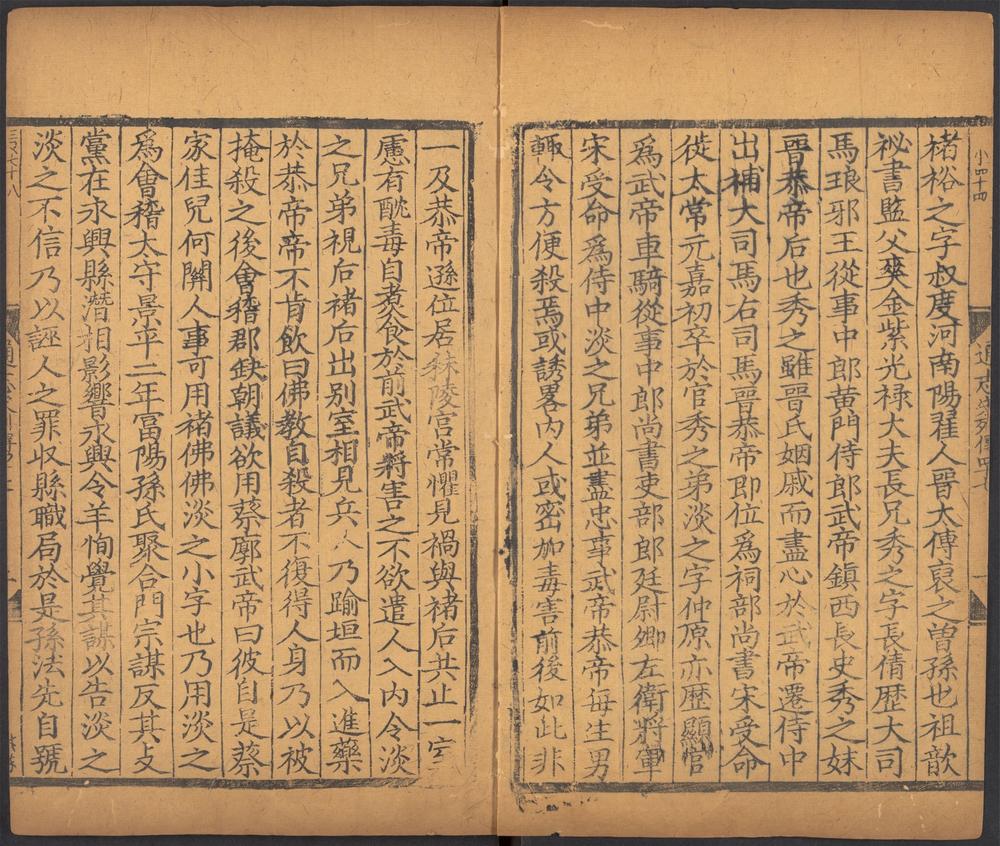 小四十四
褚裕之字叔度河南陽翟人晉太傅裒之曾孫也祖歆
祕書監父爽金紫光祿大夫長兄秀之字長倩歷大司
馬琅邪王從事中郎黃門侍郎武帝鎮西長史秀之妹
晉恭帝后也秀之雖晉氏姻戚而盡心於武帝遷侍中
出補大司馬右司馬晉恭帝即位爲祠部尚書宋受命
徙太常元嘉初卒於官秀之弟淡之字仲原亦歷顯官
爲武帝車騎從事中郎尚書吏部郎廷尉卿左衛將軍
宋受命爲侍中淡之兄弟並盡忠事武帝恭帝每生男
輒令方便殺焉或誘畧內人或密加毒害前後如此非
一及恭帝遜位居秣陵宫常懼見禍與褚后共止一室
慮有酖毒自煮食於前武帝將害之不欲遣人入內令淡
之兄弟視后褚后出別室相見兵人乃踰垣而入進藥
於恭帝帝不肯飲曰佛教自殺者不復得人身乃以被
掩殺之後會稽郡缺朝議欲用蔡廓武帝曰彼自是蔡
家佳兒何關人事可用褚佛佛淡之小字也乃用淡之
爲會稽太守景平二年富陽孫氏聚合門宗謀反其支
黨在永興縣潛相影響永興令羊恂覺其謀以告淡之
淡之不信乃以誣人之罪収縣職局於是孫法先自號